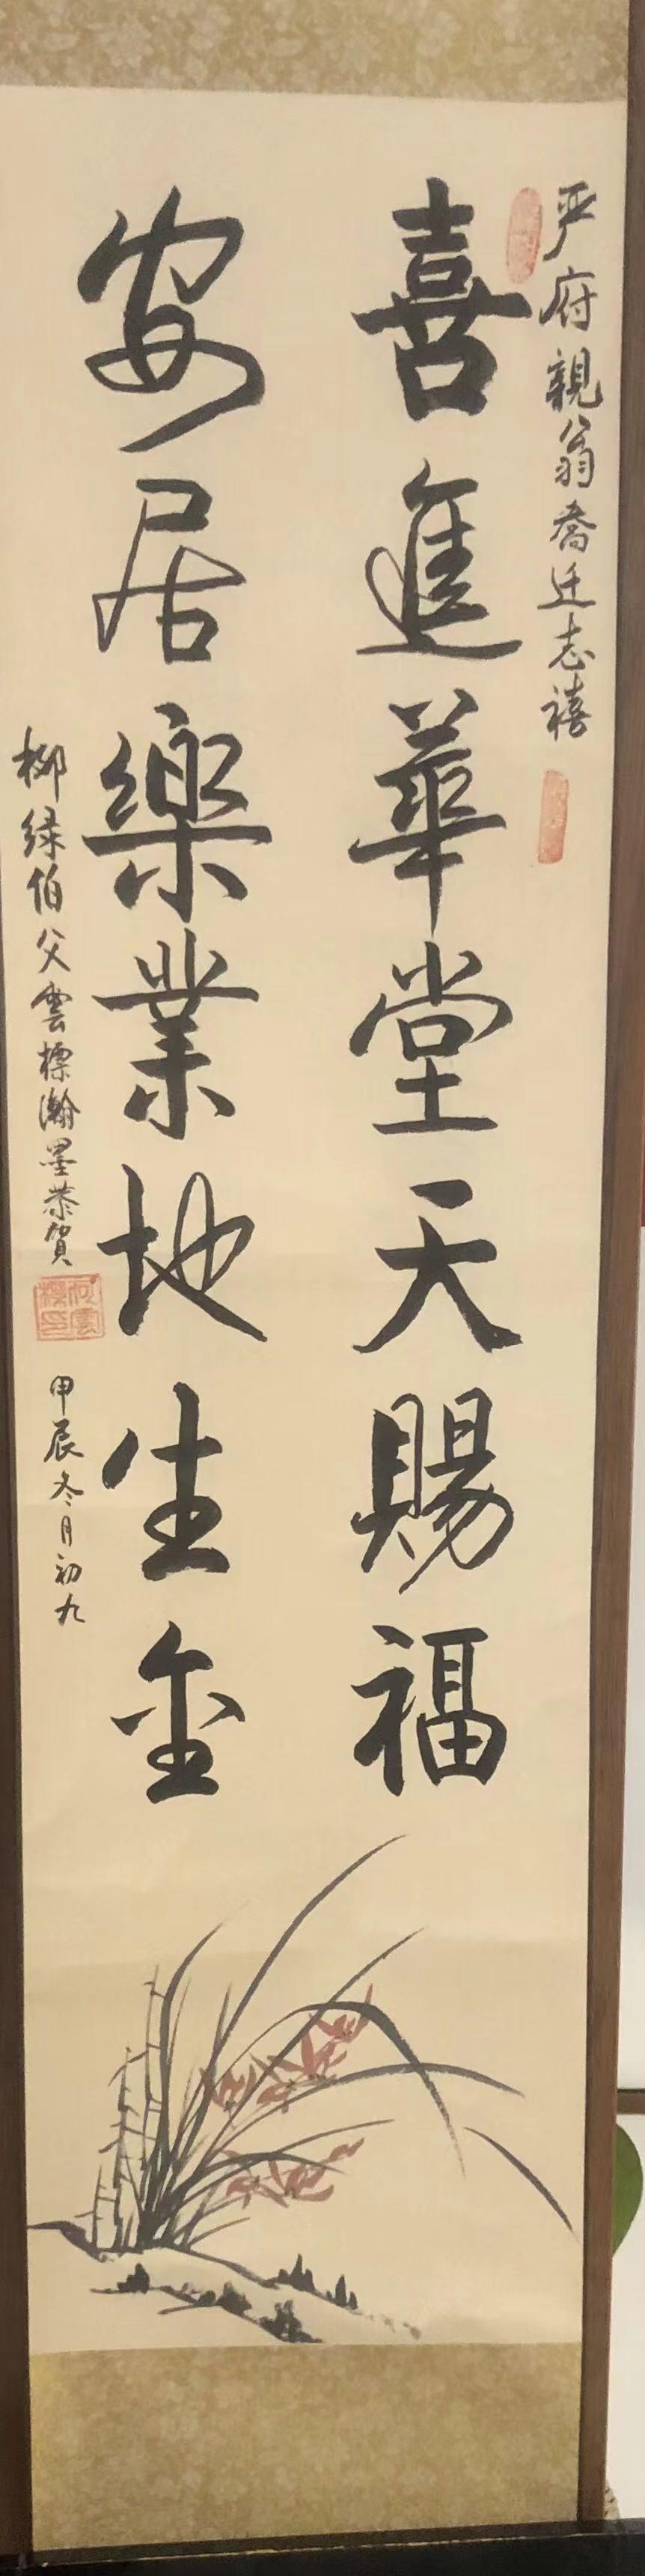 严府親翁喬迁志禧
喜進華堂天賜福
安居樂業地生金
柳绿伯父雲標瀚墨恭賀
何雲標印
甲辰冬月初九